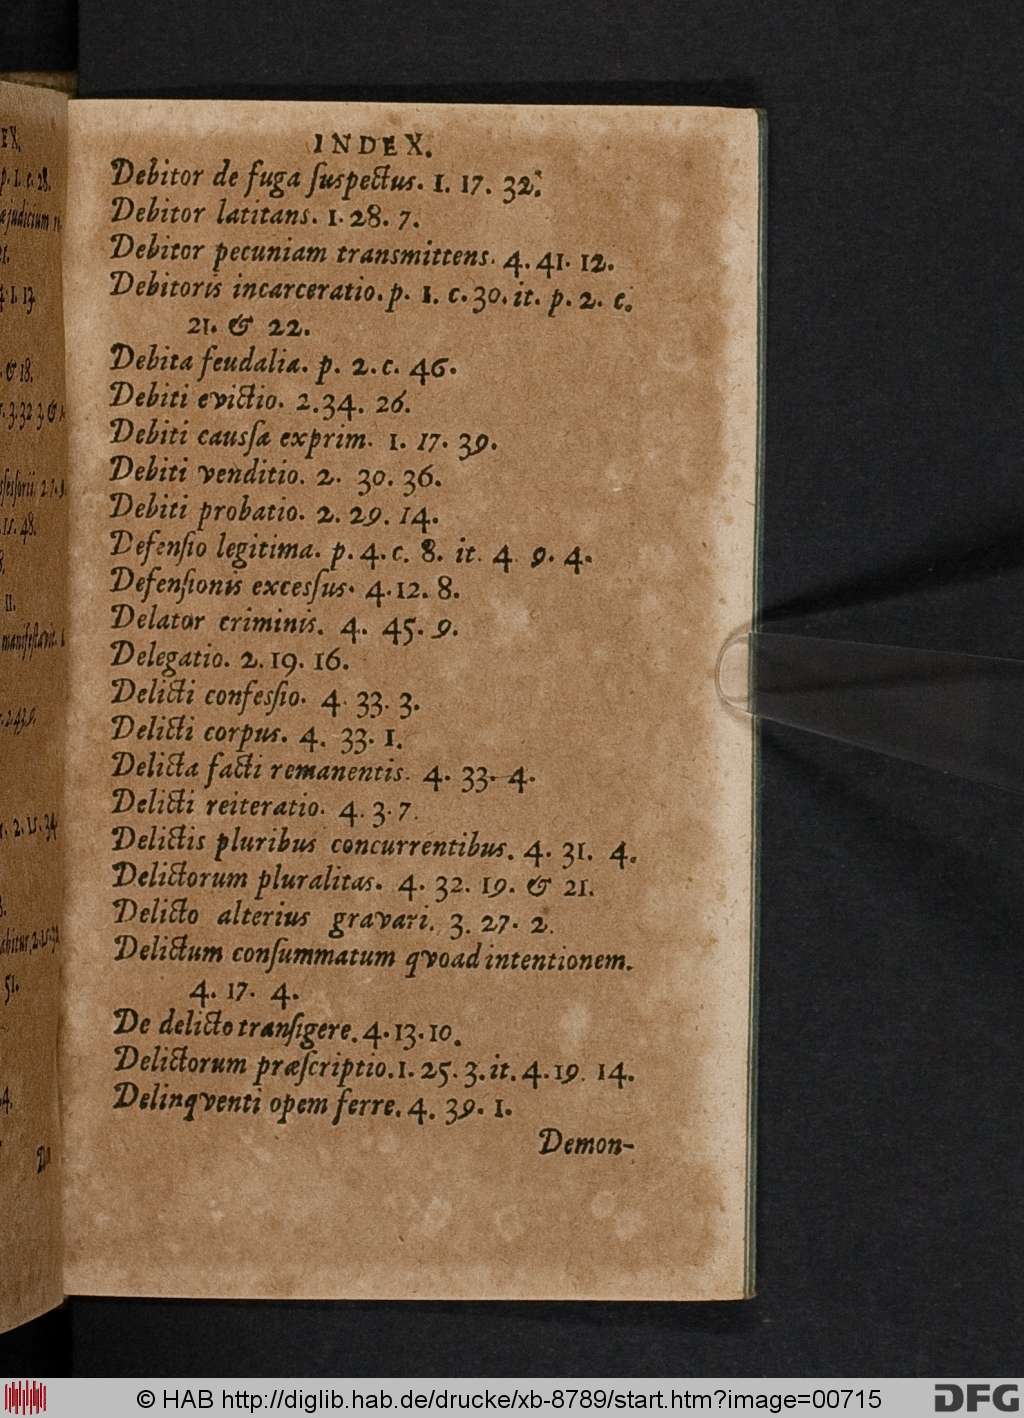 INDEX.
Debitor de fuga ſuspectus. 1. 17. 32.
Debitor latitans. 1. 28. 7.
Debitor pecuniam transmittens. 4. 41. 12.
Debitoris incarceratio. p. 1. c. 30. it. p. 2. c.
21. & 22.
Debita feudalia. p. 2. c. 46.
Debiti evictio. 2. 34. 26.
Debiti cauſſa exprim. 1. 17. 39.
Debiti venditio. 2. 30. 36.
Debiti probatio. 2. 29. 14.
Defenſio legitima. p. 4. c. 8. it. 4. 9. 4.
Defenſionis exceſſus. 4. 12. 8.
Delator criminis. 4. 45. 9.
Delegatio. 2. 19. 16.
Delicti confeſſio. 4. 33. 3.
Delicti corpus. 4. 33. 1.
Delicta facti remanentis. 4. 33. 4.
Delicti reiteratio. 4. 3. 7.
Delictis pluribus concurrentibus. 4. 31. 4.
Delictorum pluralitas. 4. 32. 19. & 21.
Delicto alterius gravari. 3. 27. 2.
Delictum conſummatum qvoad intentionem.
4. 17. 4.
De delicto tranſigere. 4. 13. 10.
Delictorum præſcriptio. 1. 25. 3. it. 4. 19. 14.
Delinqventi opem ferre. 4. 39. 1.
Demon-
© HAB http://diglib.hab.de/drucke/xb-8789/start.htm?image=00715
DFG